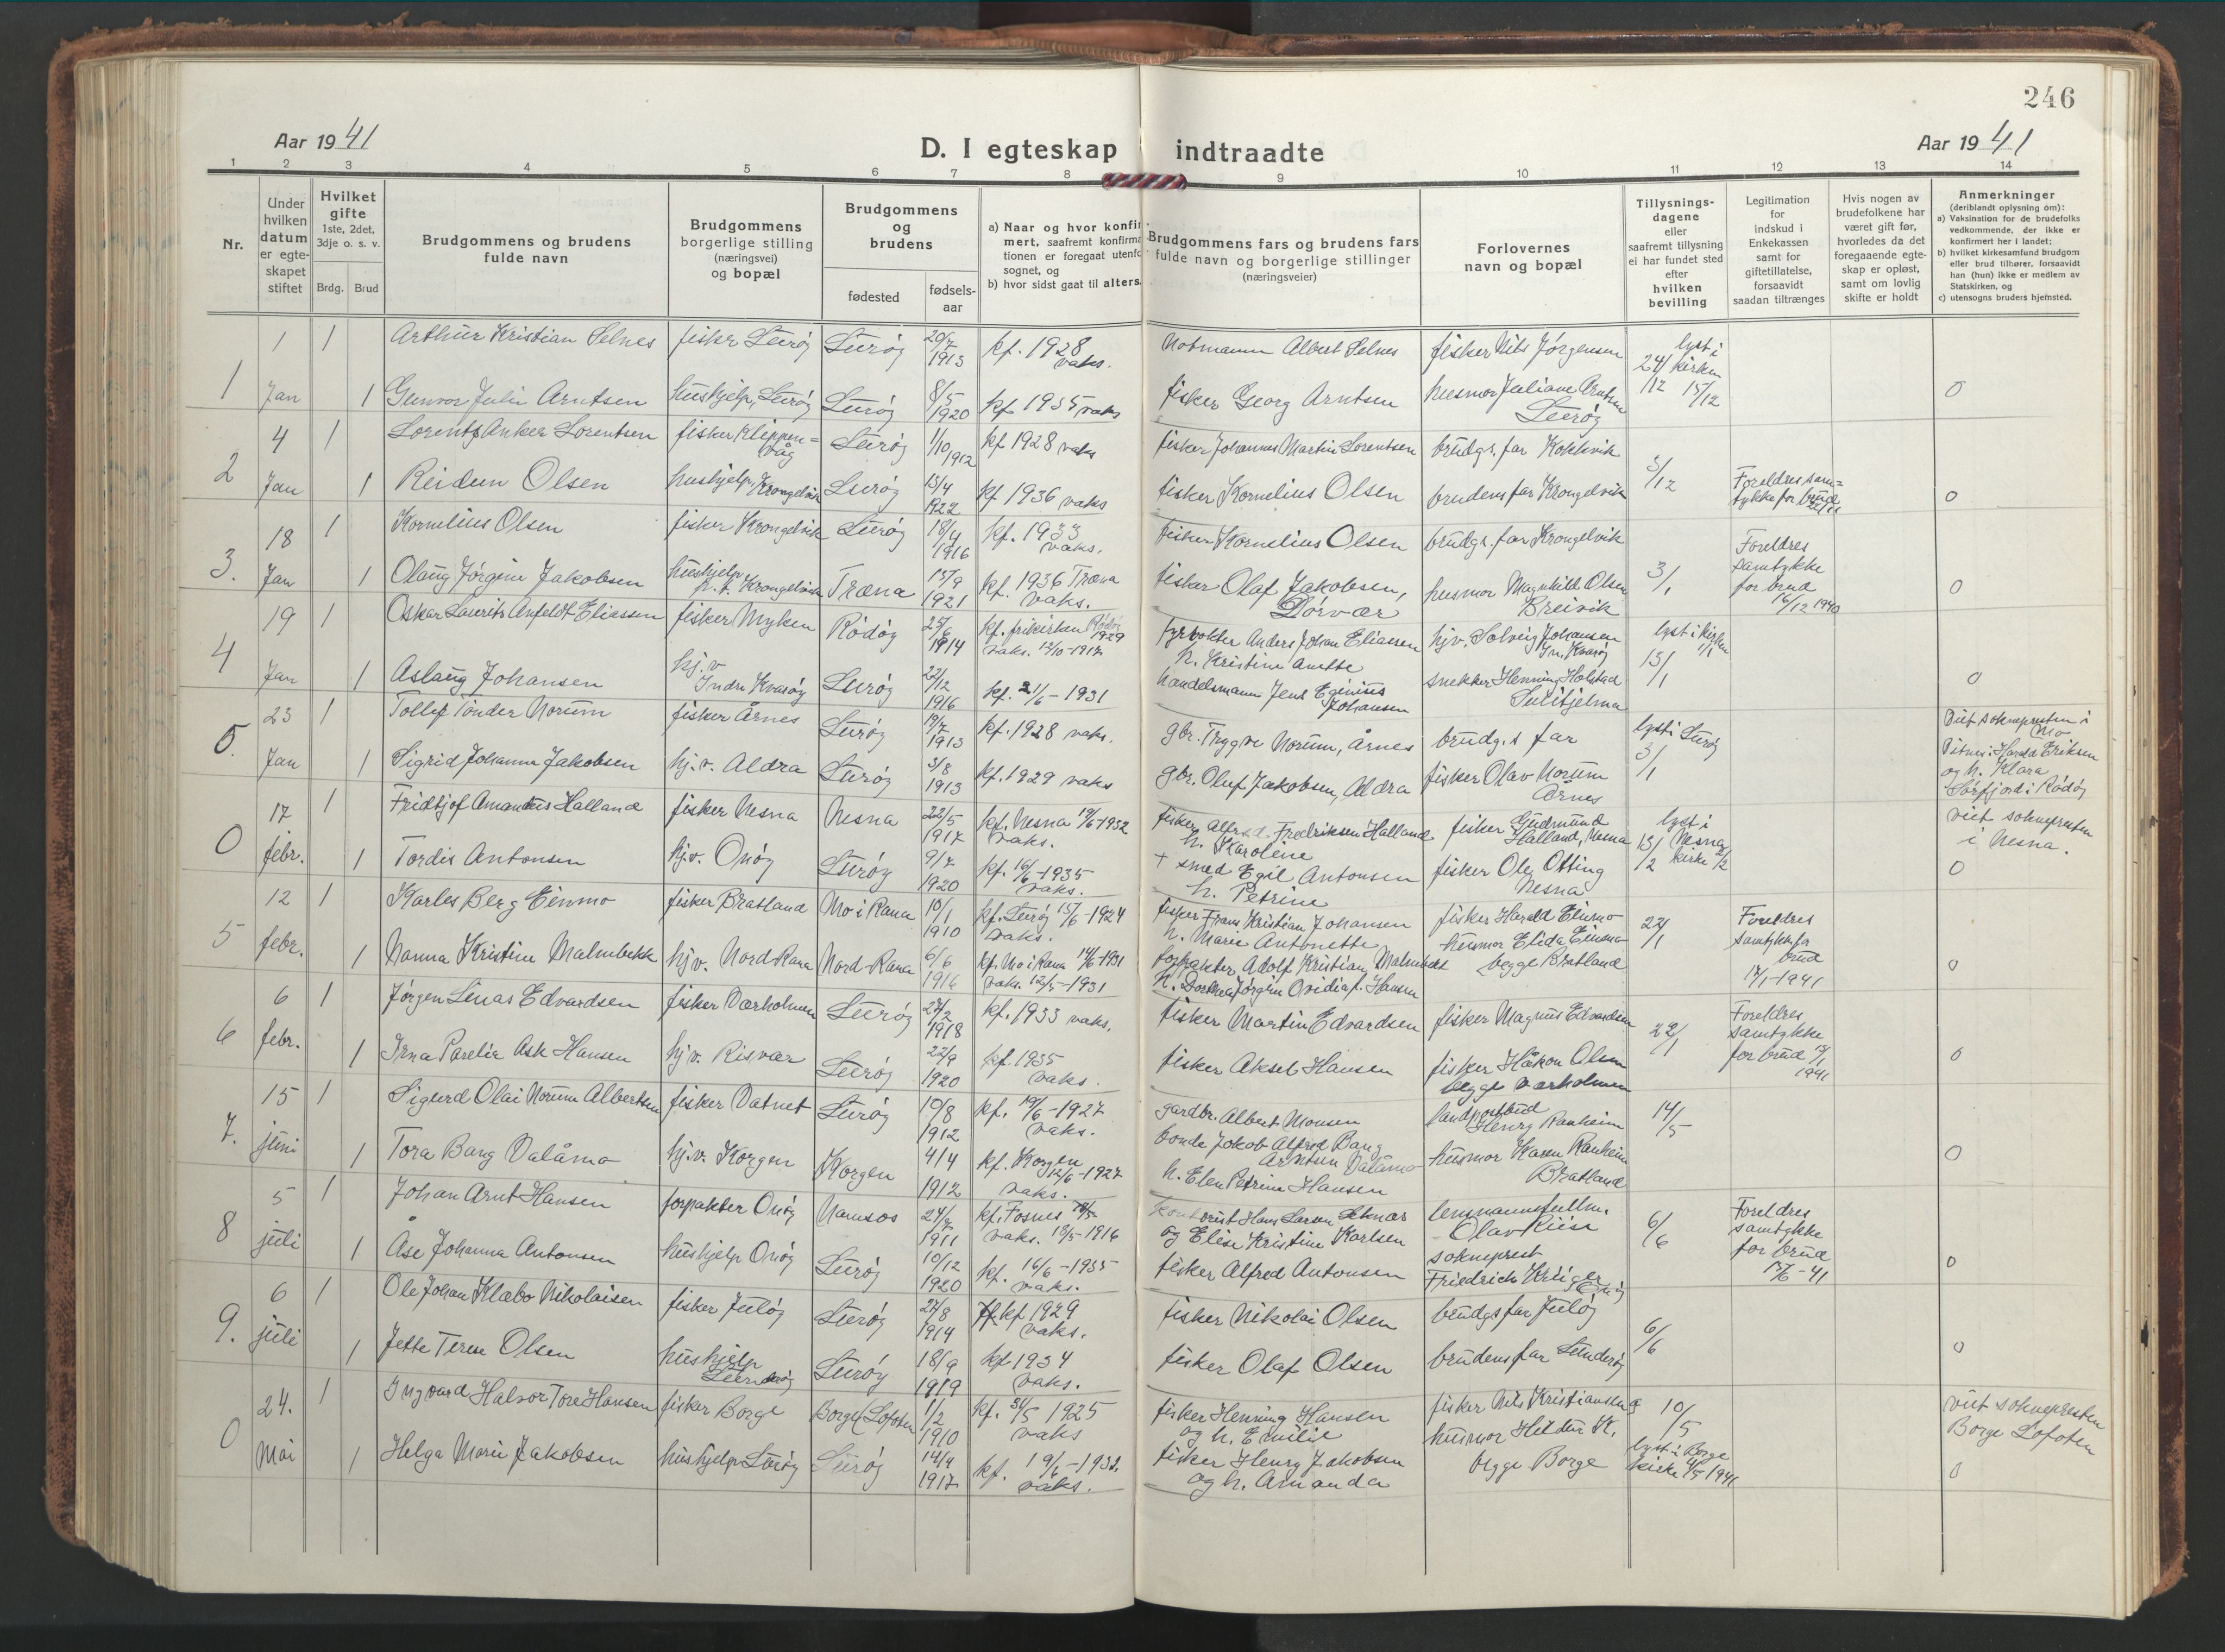 246
Aar 1941
D. I egteskap indtraadte
Aar 1941
1 2 3 4 5 6 7 8 9 10 11 12 13 14
Nr.
Under hvilken datum er egteskapet stiftet
Hvilket gifte 1ste, 2det, 3dje o. s. v.
Brdg. Brud
Brudgommens og brudens fulde navn
Brudgommens borgerlige stilling (næringsvei) og bopæl
Brudgommens og brudens
fødested
fødsels-aar
a) Naar og hvor konfir
mert, saafremt konfirma
tionen er foregaat utenfo
sognet, og
b) hvor sidst gaat til alters.
Brudgommens fars og brudens fars
fulde navn og borgerlige stillinger
(næringsveier)
Forlovernes navn og bopæl
Tillysnings-dagene eller saafremt tillysning ei har fundet sted efter hvilken bevilling
Legitimation for indskud i Enkekassen samt for giftetillatelse, forsaavidt saadan tiltrænges
Hvis nogen av brudefolkene har været gift før, hvorledes da det foregaaende egteskap er opløst, samt om lovlig skifte er holdt
Anmerkninger
(deriblandt oplysning om):
a) Vaksination for de brudefolks vedkommende, der ikke er konfirmert her i landet;
b) hvilket kirkesamfund brudgom eller brud tilhører, forsaavidt han (hun) ikke er medlem av Statskirken, og
c) utensogns bruders hjemsted.
1 1 Jan 1 Arthur Kristian Selnes fisker Lurøy Lurøy 20/7 1913 kf. 1928 vaks. Notmann Albert Selnes fisker Nils Jørgensen lyst i kirken 24/12 15/12
1 Gunvor Julie Arntsen hushjelp, Lurøy Lurøy 8/5 1920 kf 1935 vaks fisker Georg Arntsen husmor Juliane Arntsen Lurøy 0
2 4 Jan 1 Lorentz Anker Lorentsen fisker Klippenvåg Lurøy 1/10 1912 kf 1928 vaks fisker Johannes Martin Lorentsen brudgs. far Kokkvik 3/12
1 Reidun Olsen hushjelp, Krongelvik Lurøy 13/4 1922 kf 1936 vaks fisker Kornelius Olsen brudens far Krongelvik Foreldres samtykke for brud 0
3. 18 Jan 1 Kornelius Olsen fisker Krongelvik Lurøy 18/4 1916 kf. 1933 vaks. fisker Kornelius Olsen brudgs. far Krongelvik 3/1 Foreldres samtykke for brud 16/12 1940
1 Olaug Jørgine Jakobsen hushjelp Krongelvik Træna 15/9 1921 kf. 1936 Træna vaks. fisker Olaf Jakobsen, Dørvær husmor Magnhild Olsen Breivik 0
4 19 Jan 1 Oskar Laurits Anfeldt Eliassen fisker Myken Rødøy 25/6 1914 kf. frikirken Rødøy 1929 vaks. 12/10-1917 Fyrvokter Anders Johan Eliassen h. Kristine Anette hjv. Solveig Johansen In. Kvarøy lyst i kirken 13/1
1 Aslaug Johansen hj.v Indre Kvarøy Lurøy 22/12 1916 kf. 21/6-1931 handelsmann Jens Eginius Johansen snekker Henning Holstad Sulitjelma 0
0. 23 Jan 1 Tollef Tønder Norum fisker Årnes Lurøy 19/7 1913 kf. 1928 vaks. gbr. Trygve Norum, Årnes brudg.s far lyst i Lurøy 3/1 Viet sokneprsten i Mo
1 Sigrid Johanna Jakobsen hj.v. Aldra Lurøy 3/8 1913 kf. 1929 vaks gbr. Oluf Jakobsen, Aldra fisker Olav Norum Årnes Vitner: Harald Eriksen og h. Klara Sørfjord i Rødøy
0 17 febr. 1 Fridtjof Amandus Halland fisker Nesna Nesna 22/5 1917 kf. Nesna 19/6-1932 vaks. fisker Alfred Fredriksen Halland h. Karoline fisker Gudmund Halland, Nesna lyst i Nesna kirke 13/2 viet sokneprsten i Nesna.
1 Tordis Antonsen hj.v. Onøy Lurøy 9/7 1920 kf. 16/6-1935 vaks. + smed Egil Antonsen h. Petrine fisker Ole Otting Nesna 0
5 12 febr. 1 Karles Berg Einmo fisker Bratland Mo i Rana 10/1 1910 kf. Lurøy 15/6-1924 vaks. fisker Frans Kristian Johansen h. Marie Antonette fisker Harald Einmo husmor Elida Einmo 22/1 Foreldres samtykke for brud 17/1-1941
1 Nanna Kristine Malmbekk hjv. Nord Rana Nord-Rana 6/6 1916 kf. Mo i Rana 14/6-1931 vaks. 12/5-1931 forpakter Adolf Kristian Malmbekk h. Dorthea Jørgine Ovidia f. Hansen begge Bratland 0
6 6 febr. 1 Jørgen Linas Edvardsen fisker Værholmen Lurøy 27/2 1918 kf. 1933 vaks. fisker Martin Edvardsen fisker Magnus Edvardsen 22/1 Foreldres samtykke for brud 1941
1 Irna Parelie Ask Hansen hjv. Risvær Lurøy 22/9 1920 kf. 1935 vaks. fisker Aksel Hansen fisker Håkon Olsen begge Værholmen 0
7. 15 juni 1 Sigurd Olai Norum Albertsen fisker Vatnet Lurøy 10/8 1912 kf. 19/6-1927 vaks. gardbr. Albert Monsen landpostbud Henry Ranheim 14/5
1 Tora Bang Valåmo hj.v. Korgen Korgen 4/4 1912 kf. Korgen 12/6-1927 vaks. bonde Jakob Alfred Bang Arntsen Valåmo h. Elen Petrine Hansen husmor Karen Ranheim Bratland 0
8 5 juli 1 Johan Arnt Hansen forpakter Onøy Namsos 24/7 1911 kf. Fosnes vaks. 13/5-1916 Kontorist Hans Larsen Seknæs og Elise Kristine Karlsen lensmannsfullm. Olav Riise 6/6 Foreldres samtykke for brud 17/6-41
1 Åse Johanna Antonsen hushjelp Onøy Lurøy 10/12 1920 kf. 16/6-1935 vaks. fisker Alfred Antonsen sokneprest Friedrich Krüger 0
9. 6 juli 1 Ole Johan Klæbo Nikolaisen fisker Juløy Lurøy 27/8 1914 kf 1929 vaks. fisker Nikolai Olsen brudgs far Juløy 6/6
1 Jette Terese Olsen hushjelp Lurøy 18/9 1919 kf 1934 vaks. fisker Olaf Olsen brudens far Sunderøy 0
0 24. Mai 1 Ingvard Halvor Tore Hansen fisker Borge Borge (Lofoten 1/2 1910 kf. 31/5 1925 vaks fisker Henning Hansen og h. Emilie fisker Nils Kristiansen og husmor Hildur K. 10/5 viet soknepresten Borge Lofoten
1 Helga Marie Jakobsen hushjelp Lurøy Lurøy 14/9 1917 kf. 19/6-1932. vaks. fisker Henry Jakobsen og h. Amanda begge Borge lyst i Borge kirke 1941 0